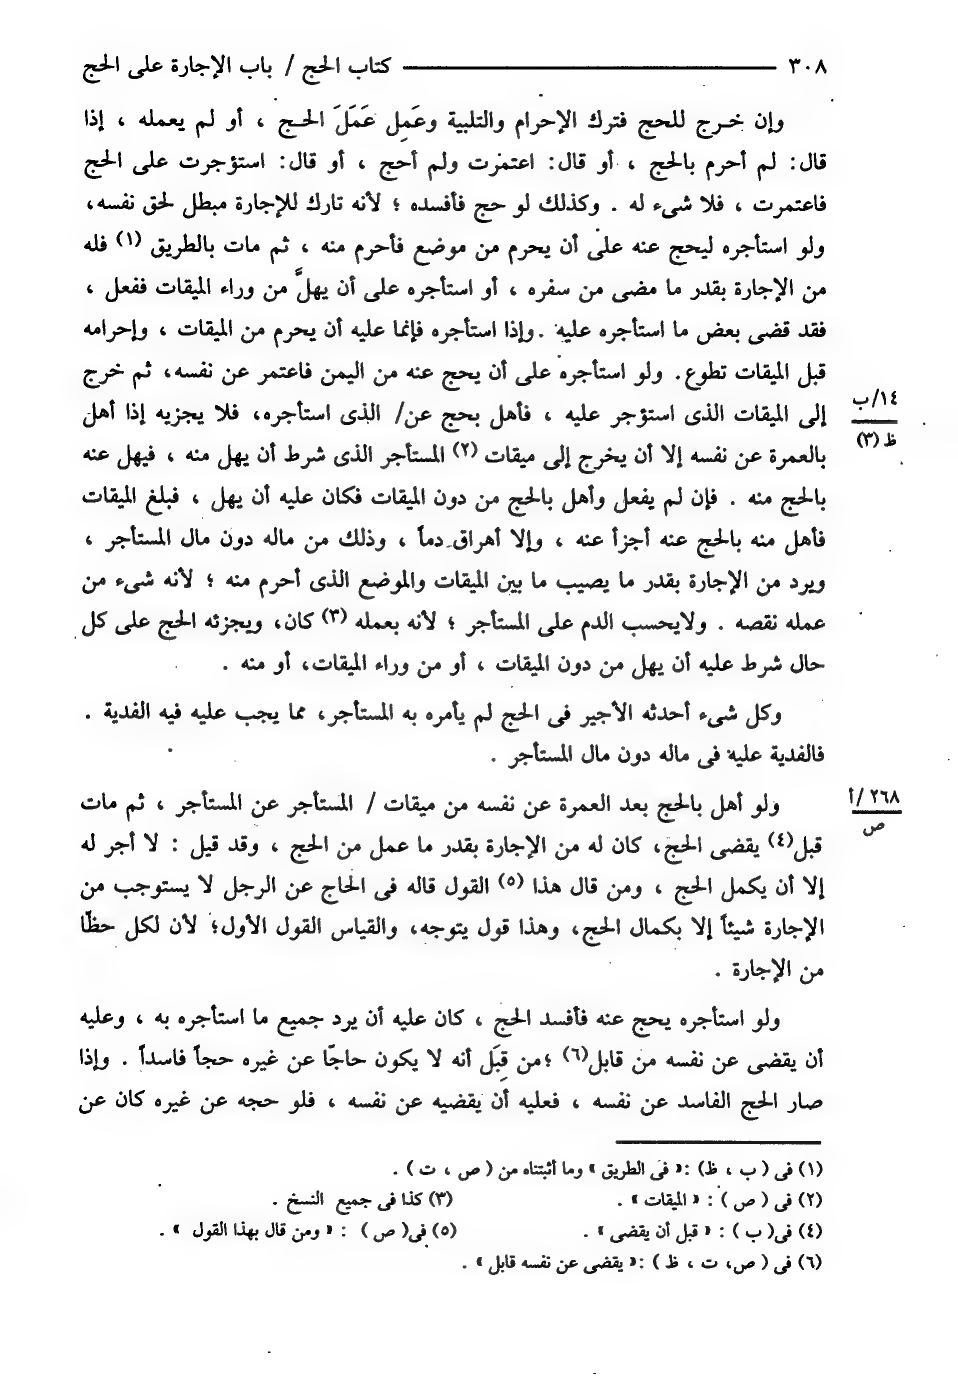 ٣٠٨ كتاب الحج / باب الإجارة على الحج
وإن خرج للحج فترك الإحرام والتلبية وعَمِل عَمَلَ الحج ، أو لم يعمله ، إذا
قال: لم أحرم بالحج ، أو قال: اعتمرت ولم أحج ، أو قال: استؤجرت على الحج
فاعتمرت ، فلا شىء له . وكذلك لو حج فأفسده ؛ لأنه تارك للإجارة مبطل لحق نفسه،
ولو استأجره ليحج عنه على أن يحرم من موضع فأحرم منه ، ثم مات بالطريق (١) فله
من الإجارة بقدر ما مضى من سفره ، أو استأجره على أن يهلَّ من وراء الميقات ففعل ،
فقد قضى بعض ما استأجره عليه .وإذا استأجره فإنما عليه أن يحرم من الميقات ، وإحرامه
قبل الميقات تطوع. ولو استأجره على أن يحج عنه من اليمن فاعتمر عن نفسه، ثم خرج
إلى الميقات الذى استؤجر عليه ، فأهل بحج عن/ الذى استأجره، فلا يجزيه إذا أهل
١٤/ب
ظ (٣)
بالعمرة عن نفسه إلا أن يخرج إلى ميقات (٢) المستأجر الذى شرط أن يهل منه ، فيهل عنه
بالحج منه . فإن لم يفعل وأهل بالحج من دون الميقات فكان عليه أن يهل ، فبلغ الميقات
فأهل منه بالحج عنه أجزأ عنه ، وإلا أهراق دماً ، وذلك من ماله دون مال المستأجر ،
ويرد من الإجارة بقدر ما يصيب ما بين الميقات والموضع الذى أحرم منه ؛ لأنه شىء من
عمله نقصه . ولايحسب الدم على المستأجر ؛ لأنه بعمله (٣) كان، ويجزئه الحج على كل
حال شرط عليه أن يهل من دون الميقات ، أو من وراء الميقات، أو منه .
وكل شىء أحدثه الأجير فى الحج لم يأمره به المستأجر، مما يجب عليه فيه الفدية .
فالفدية عليه فى ماله دون مال المستأجر .
ولو أهل بالحج بعد العمرة عن نفسه من ميقات / المستأجر عن المستأجر ، ثم مات
٢٦٨/أ
ص
قبل(٤) يقضى الحج، كان له من الإجارة بقدر ما عمل من الحج ، وقد قيل : لا أجر له
إلا أن يكمل الحج ، ومن قال هذا (٥) القول قاله فى الحاج عن الرجل لا يستوجب من
الإجارة شيئاً إلا بكمال الحج، وهذا قول يتوجه، والقياس القول الأول؛ لأن لكل حظًا
من الإجارة .
ولو استأجره يحج عنه فأفسد الحج ، كان عليه أن يرد جميع ما استأجره به ، وعليه
أن يقضى عن نفسه من قابل(٦) ؛من قِبَل أنه لا يكون حاجًا عن غيره حجاً فاسداً . وإذا
صار الحج الفاسد عن نفسه ، فعليه أن يقضيه عن نفسه ، فلو حجه عن غيره كان عن
(١) فى ( ب ، ظ) :« فى الطريق » وما أثبتناه من ( ص ، ت ) .
(٢) فى ( ص ) : « الميقات » . (٣) كذا فى جميع النسخ .
(٤) فى( ب ) : « قبل أن يقضى » . (٥) فى( ص ) : « ومن قال بهذا القول » .
(٦) فى ( ص، ت ، ظ ) :« يقضى عن نفسه قابل » .